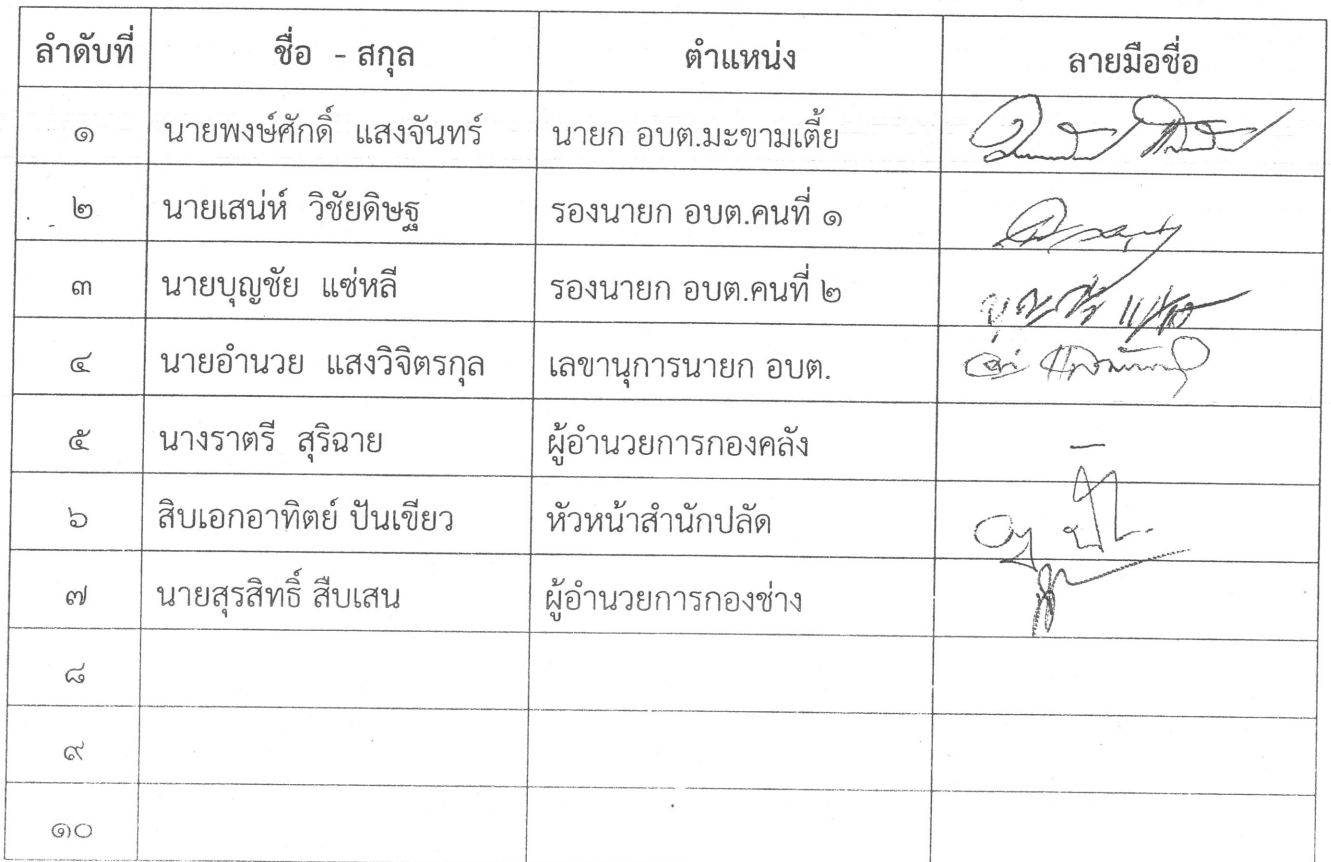 ลำดับที่ ชื่อ - สกุล ตำแหน่ง ลายมือชื่อ
๑ นายพงษ์ศักดิ์ แสงจันทร์ นายก อบต.มะขามเตี้ย
๒ นายเสน่ห์ วิชัยดิษฐ รองนายก อบต.คนที่ ๑
๓ นายบุญชัย แซ่หลี รองนายก อบต.คนที่ ๒
๔ นายอำนวย แสงวิจิตรกุล เลขานุการนายก อบต.
๕ นางราตรี สุริฉาย ผู้อำนวยการกองคลัง –
๖ สิบเอกอาทิตย์ ปันเขียว หัวหน้าสำนักปลัด
๗ นายสุรสิทธิ์ สืบเสน ผู้อำนวยการกองช่าง
๘
๙
๑๐